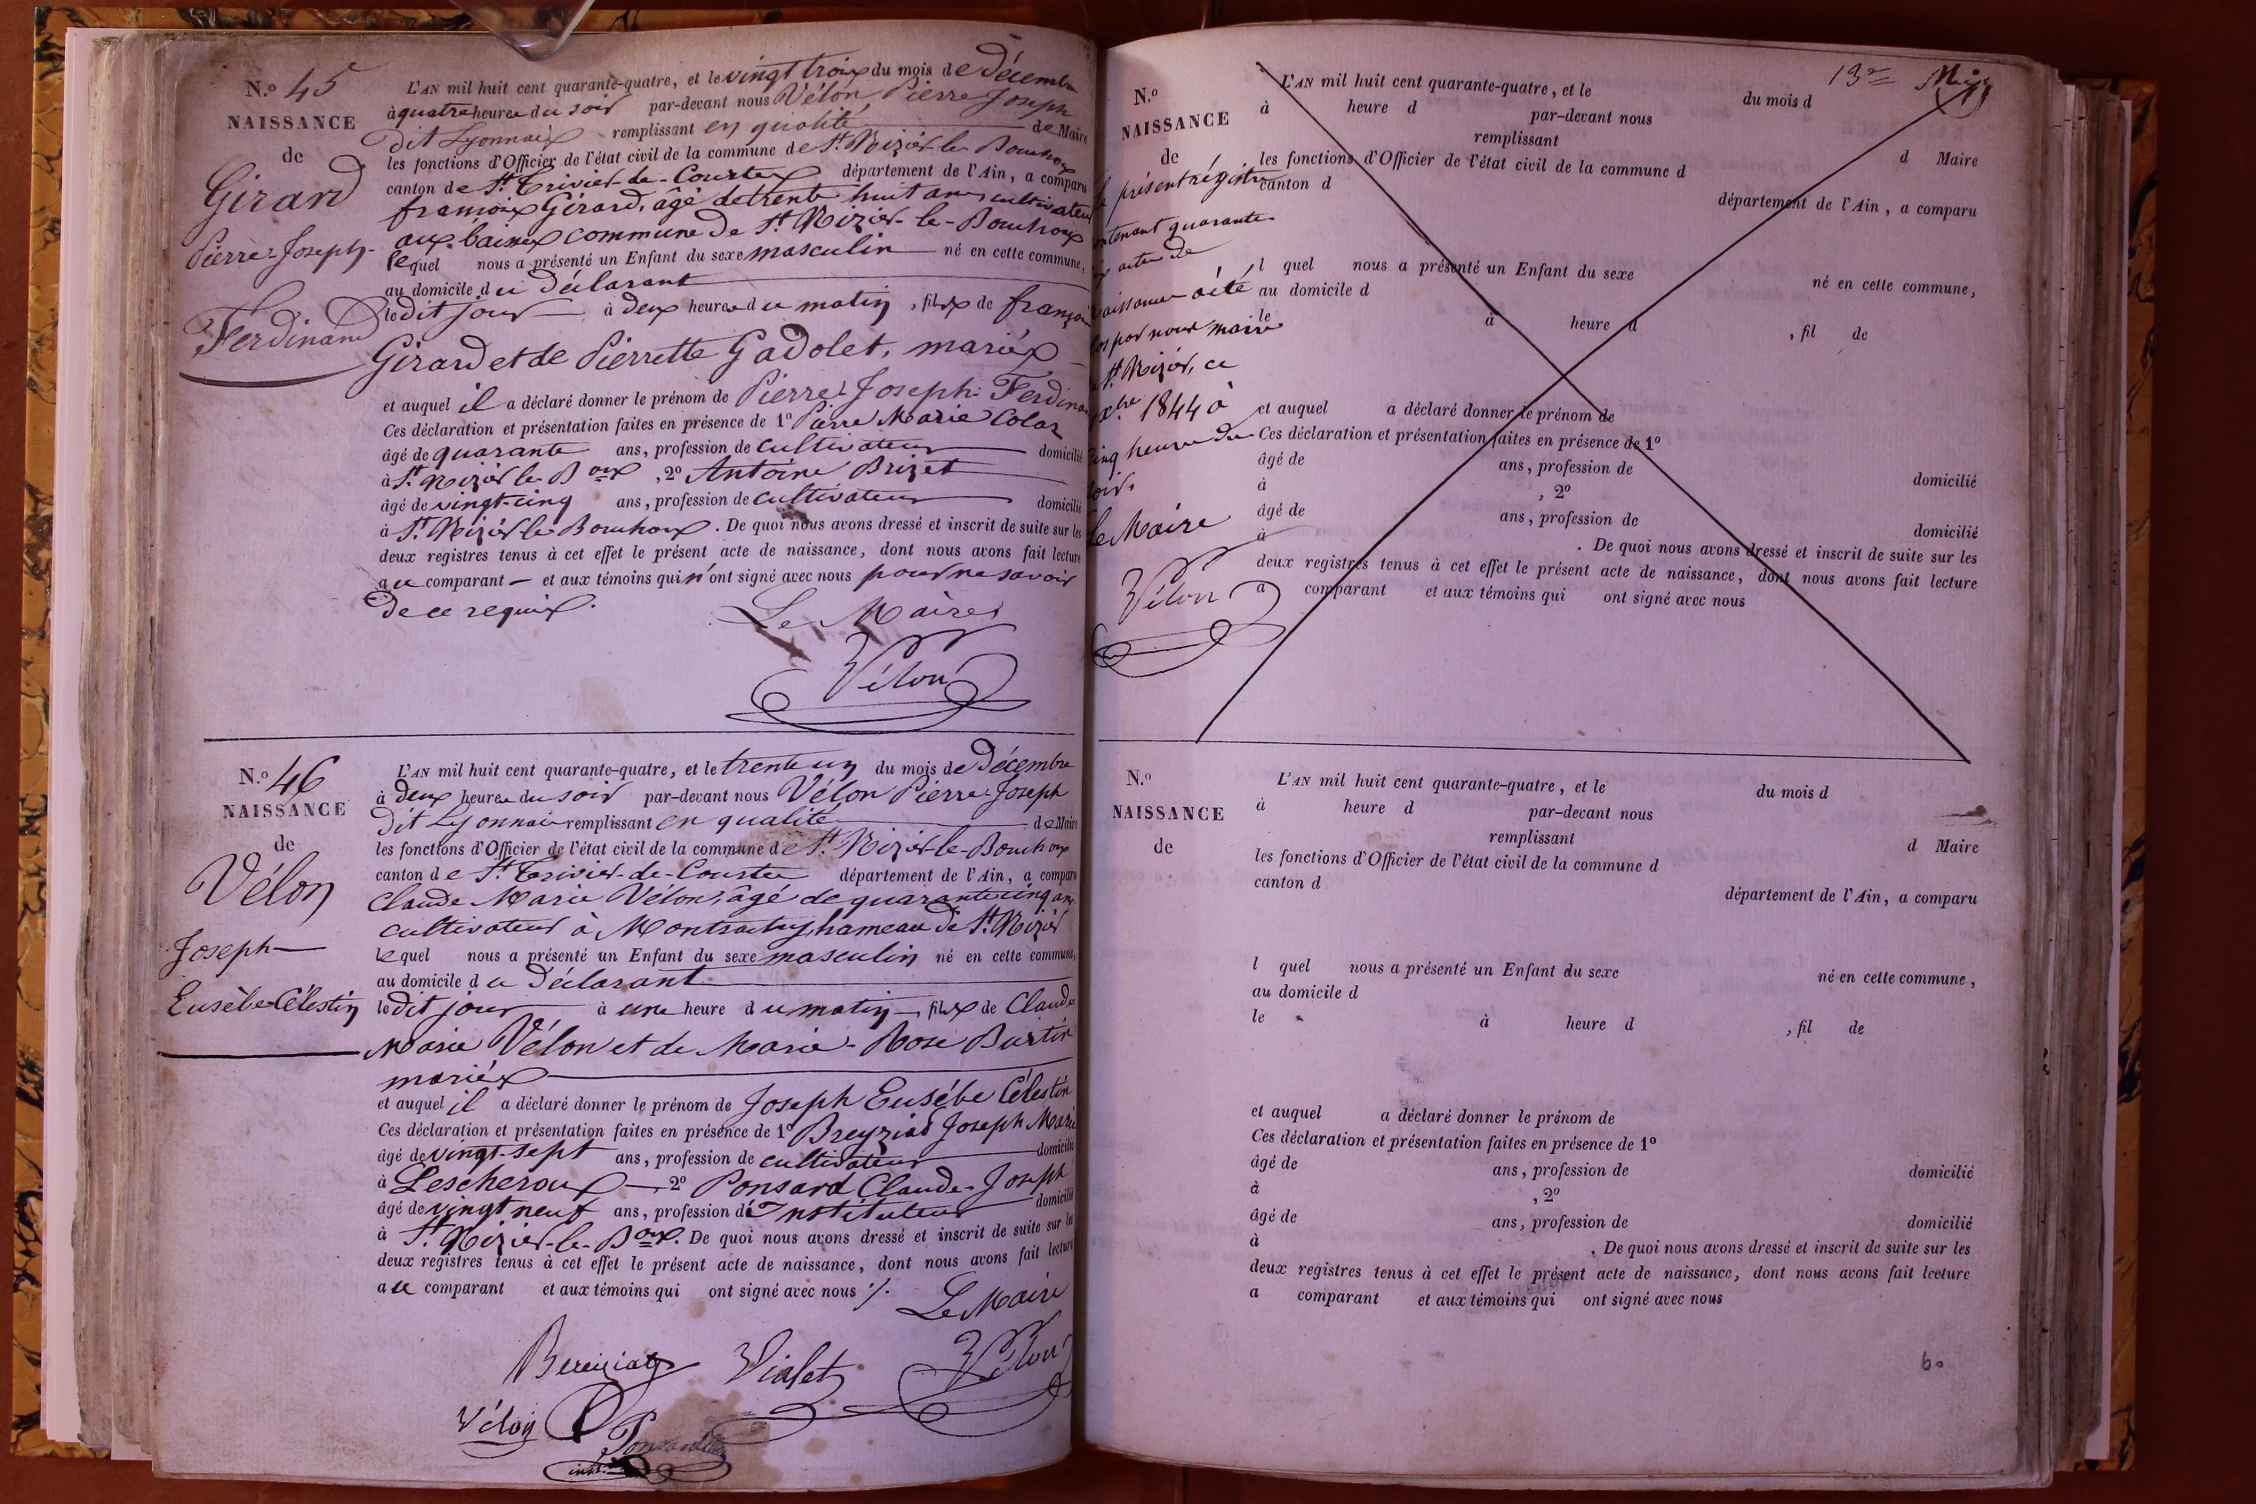 N.o 45
NAISSANCE
de
Girard
Pierre-Joseph-
Ferdinand
L'AN mil huit cent quarante-quatre, et le vingt trois du mois de Décembre
à quatre heure du soir par-devant nous Vélon Pierre Joseph
dit Lyonnais remplissant en qualité de Maire
les fonctions d'Officier de l'état civil de la commune de St. Nizier-le-Bouchoux
canton de St. Trivier-de-Courtes département de l'Ain, a comparu
françois Girard, âgé de trente huit ans, cultivateur
commune de St. Nizier-le-Bouchoux
lequel nous a présenté un Enfant du sexe masculin né en cette commune,
au domicile du déclarant
le dit jour à deux heure du matin, fils de françois
Girard et de Pierrette Gadolet, mariés
et auquel il a déclaré donner le prénom de Pierre-Joseph-Ferdinand
Ces déclaration et présentation faites en présence de 1o Pierre Marie Colas
âgé de quarante ans, profession de cultivateur domicilié
à St. Nizier le Boux, 2o Antoine Brizet
âgé de vingt-cinq ans, profession de cultivateur domicilié
à St. Nizier-le-Bouchoux. De quoi nous avons dressé et inscrit de suite sur les
deux registres tenus à cet effet le présent acte de naissance, dont nous avons fait lecture
au comparant — et aux témoins qui n'ont signé avec nous pour ne savoir
de ce requis.
Le Maire
Vélon
N.o 46
NAISSANCE
de
Vélon
Joseph-
Eusèbe-Célestin
L'AN mil huit cent quarante-quatre, et le trente un du mois de Décembre
à deux heure du soir par-devant nous Vélon Pierre-Joseph
dit Lyonnais remplissant en qualité de Maire
les fonctions d'Officier de l'état civil de la commune de St. Nizier-le-Bouchoux
canton de St. Trivier-de-Courtes département de l'Ain, a comparu
Claude Marie Vélon, âgé de quarante cinq ans
cultivateur à hameau de St. Nizier
lequel nous a présenté un Enfant du sexe masculin né en cette commune,
au domicile du déclarant
le dit jour à une heure du matin, fils de Claude
Marie Vélon et de Marie-Rose Burtin
mariés
et auquel il a déclaré donner le prénom de Joseph Eusèbe Célestin
Ces déclaration et présentation faites en présence de 1o Breyziat Joseph Marie
âgé de vingt-sept ans, profession de cultivateur domicilié
à Lescheroux, 2o Ponsard Claude-Joseph
âgé de vingt neuf ans, profession d'Instituteur domicilié
à St. Nizier-le-Boux. De quoi nous avons dressé et inscrit de suite sur les
deux registres tenus à cet effet le présent acte de naissance, dont nous avons fait lecture
au comparant et aux témoins qui ont signé avec nous ./.
Le Maire
Bereiziat Vialet Vélon
Vélon Ponsard
inst.
13e
N.o
NAISSANCE
de
présent régistre
contenant quarante
actes de
naissance a été
clos par nous maire
St. Nizier, ce
Xbre 1844 à
cinq heures du
soir.
Le Maire
Vélon
L'AN mil huit cent quarante-quatre, et le du mois d
à heure d par-devant nous
remplissant d Maire
les fonctions d'Officier de l'état civil de la commune d
canton d département de l'Ain, a comparu
l quel nous a présenté un Enfant du sexe né en cette commune,
au domicile d
le à heure d , fil de
et auquel a déclaré donner le prénom de
Ces déclaration et présentation faites en présence de 1o
âgé de ans, profession de domicilié
à , 2o
âgé de ans, profession de domicilié
à . De quoi nous avons dressé et inscrit de suite sur les
deux registres tenus à cet effet le présent acte de naissance, dont nous avons fait lecture
a comparant et aux témoins qui ont signé avec nous
N.o
NAISSANCE
de
L'AN mil huit cent quarante-quatre, et le du mois d
à heure d par-devant nous
remplissant d Maire
les fonctions d'Officier de l'état civil de la commune d
canton d département de l'Ain, a comparu
l quel nous a présenté un Enfant du sexe né en cette commune,
au domicile d
le à heure d , fil de
et auquel a déclaré donner le prénom de
Ces déclaration et présentation faites en présence de 1o
âgé de ans, profession de domicilié
à , 2o
âgé de ans, profession de domicilié
à . De quoi nous avons dressé et inscrit de suite sur les
deux registres tenus à cet effet le présent acte de naissance, dont nous avons fait lecture
a comparant et aux témoins qui ont signé avec nous
60